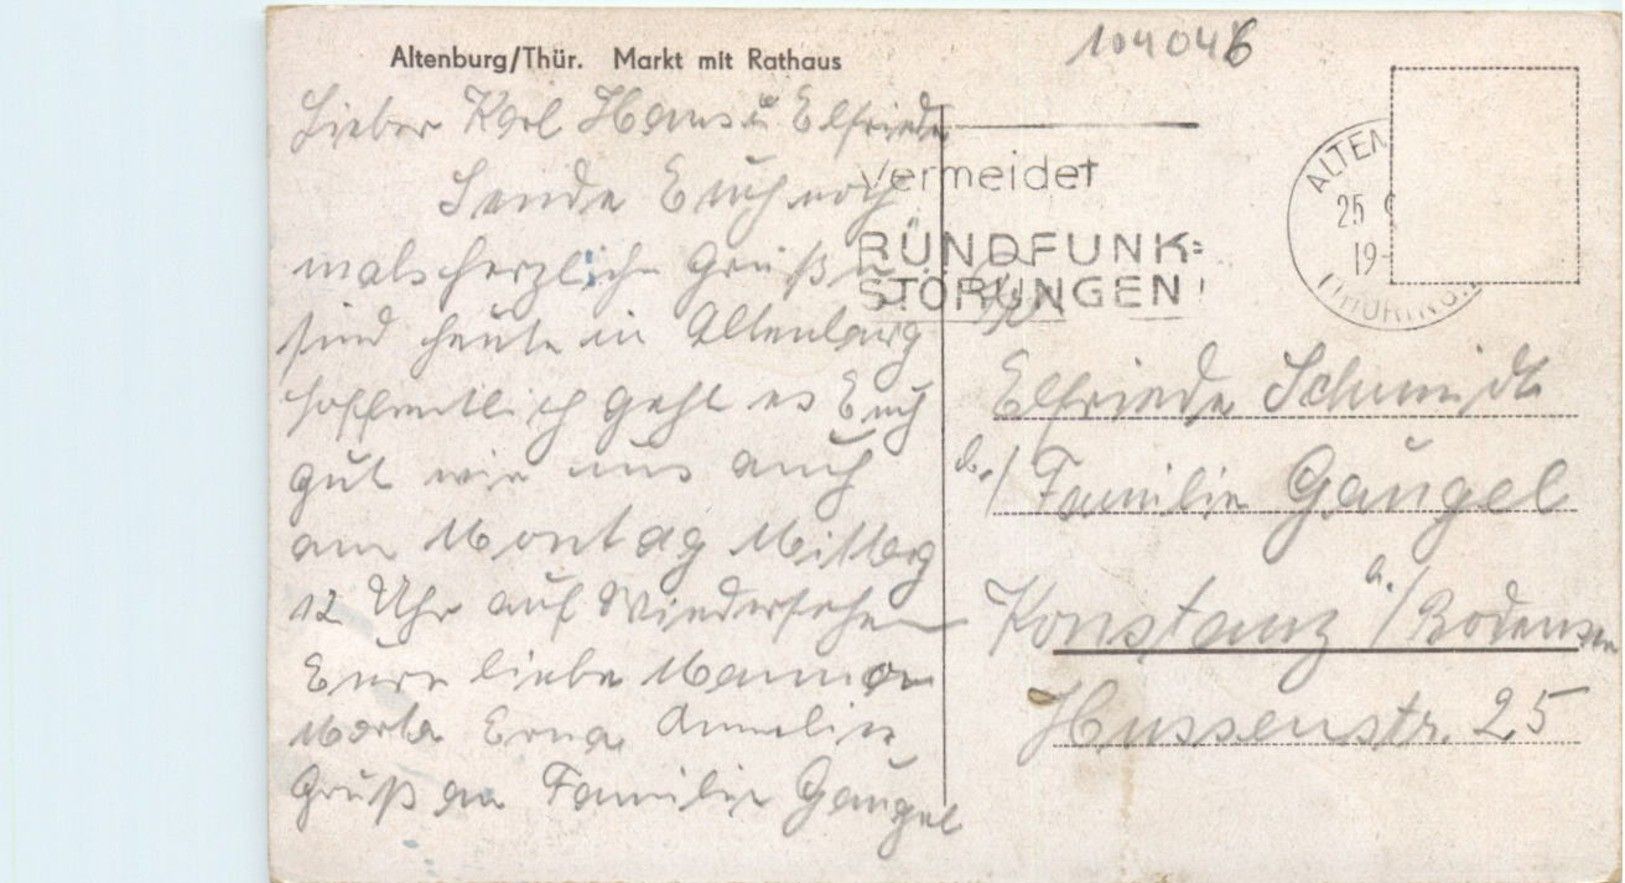 Altenburg/Thür. Markt mit Rathaus
104046
Lieber Karl Hans u Elfriede
Sende Euch noch
mals herzliche Grüße
sind heute in Altenburg
hoffentlich geht es Euch
gut wie uns auch
am Montag Mittag
12 Uhr auf Wiedersehen
Eure liebe Mamma
Marta Erna Annelies
Gruß an Familie Gaugel
Vermeidet
RUNDFUNK=
STÖRUNGEN!
ALTEN
25 9
19-
THÜRING.
Elfriede Schmidt
b./ Familie Gaugel
Konstanz a./Bodensee
Hussenstr. 25